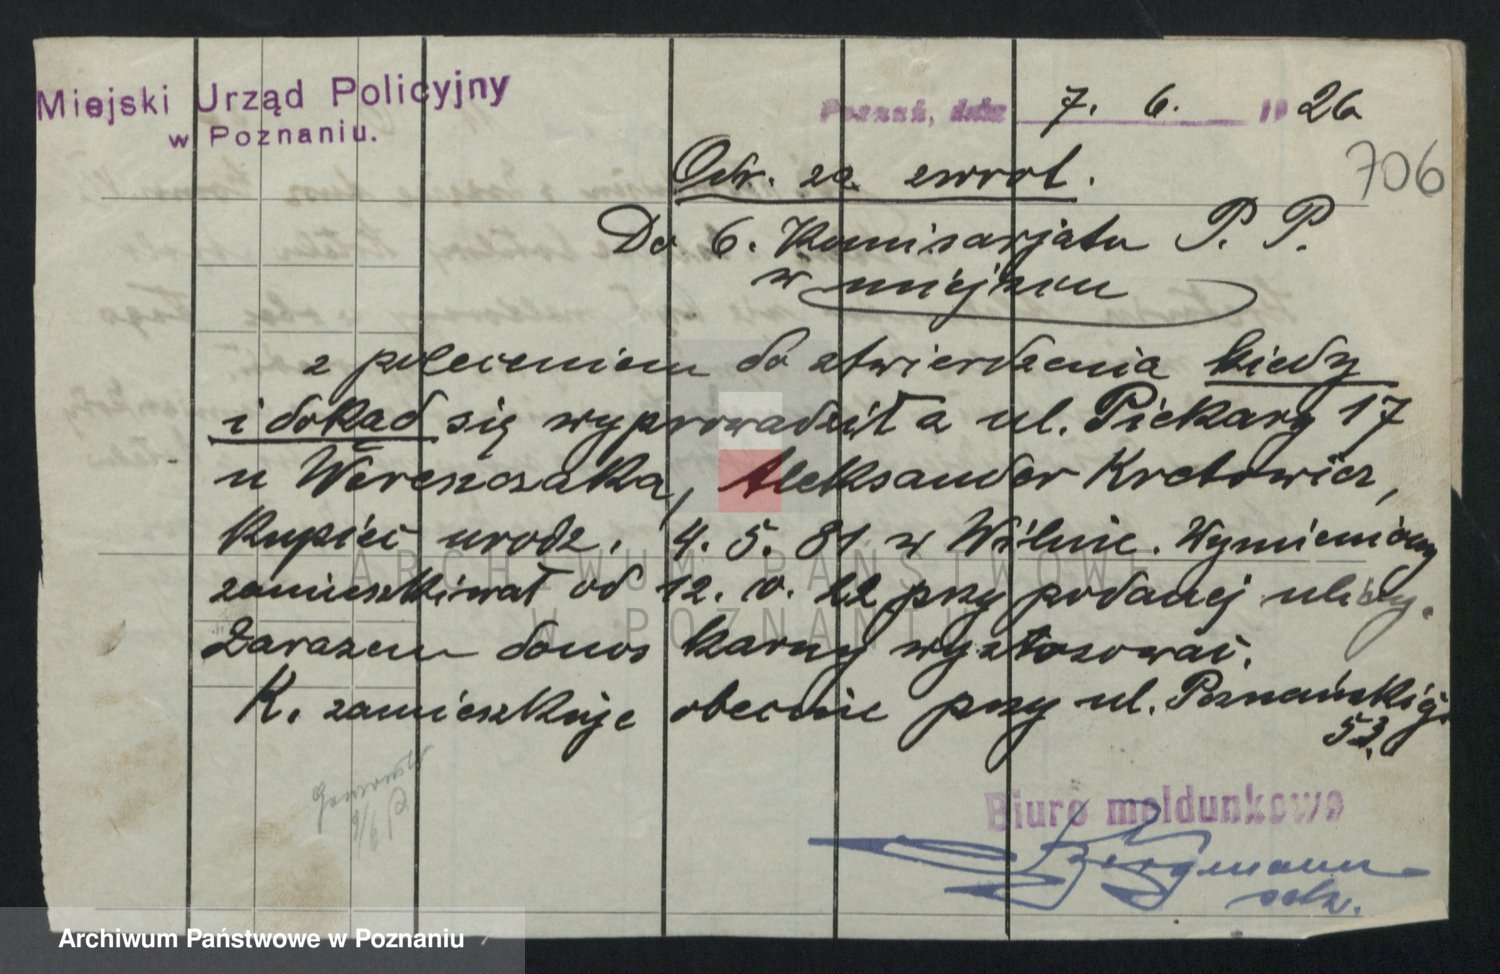 Miejski Urząd Policyjny
w Poznaniu.
Poznań, dnia 7. 6. 19 26
706
Odr. za zwrot.
Do 6. Komisarjatu P. P.
w miejscu
z poleceniem do stwierdzenia kiedy
i dokąd się wyprowadził z ul. Piekary 17
u Wereszczaka, Aleksander Kretowicz,
kupiec urodz. 4. 5. 81 w Wilnie. Wymieniony
zamieszkiwał od 12. V. 22 przy podanej ulicy.
Zarazem donos karny wystosować.
K. zamieszkuje obecnie przy ul. Poznańskiej
53.
Biuro meldunkowe
Bergmann
ARCHIWUM PAŃSTWOWE
W POZNANIU
Archiwum Państwowe w Poznaniu